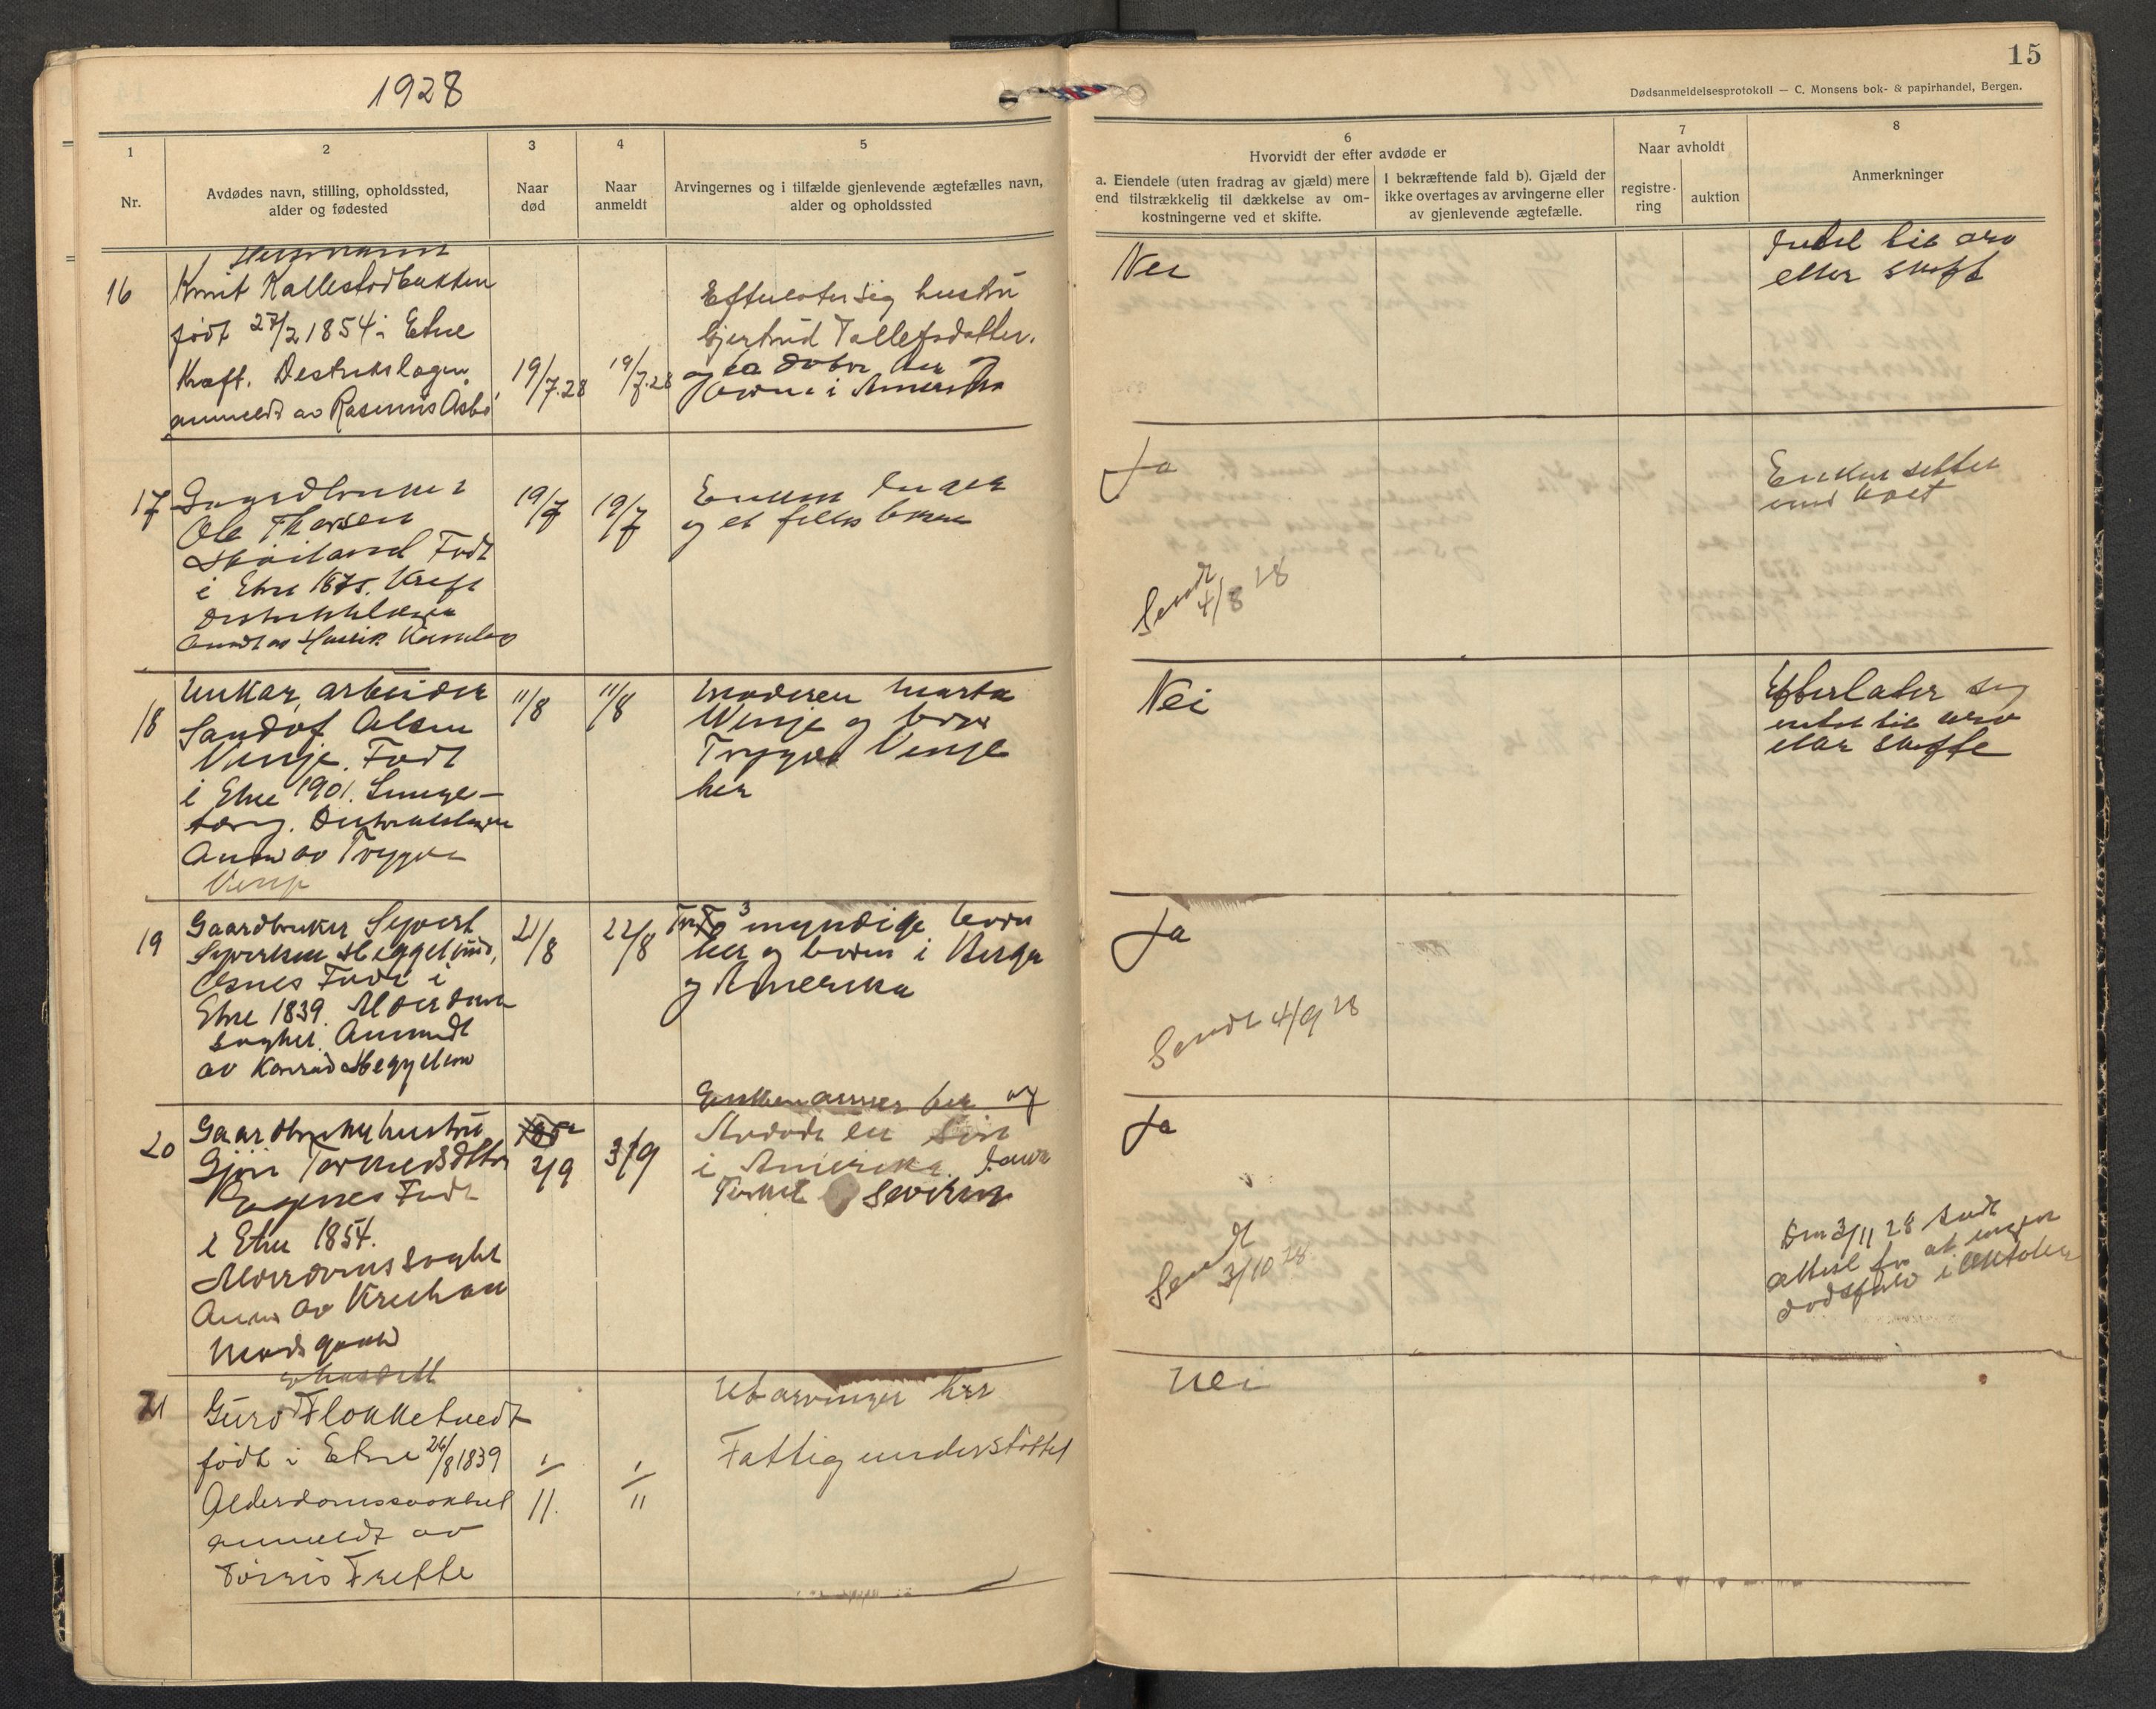 1928
15
Dødsanmeldelsesprotokoll — C. Monsens bok- & papirhandel, Bergen.
1
Nr.
2
Avdødes navn, stilling, opholdssted,
alder og fødested
3
Naar
død
4
Naar
anmeldt
5
Arvingernes og i tilfælde gjenlevende ægtefælles navn,
alder og opholdssted
6
Hvorvidt der efter avdøde er
a. Eiendele (uten fradrag av gjæld) mere
end tilstrækkelig til dækkelse av om-
kostningerne ved et skifte.
I bekræftende fald b). Gjæld der
ikke overtages av arvingerne eller
av gjenlevende ægtefælle.
7
Naar avholdt
registre-
ring
auktion
8
Anmerkninger
16
Knut
født 27/2 1854 i Etne
Kræft. Destrikslægen
anmeldt av Rasmus
19/7.28
19/7.28
Efterlater sig hustru
Gjertrud Tollefsdatter.
i Amerika
Nei
Intet til arv
eller skift
17
Ole Thorsen
Skeiland Født
i Etne 1875. Kreft
19/7
19/7
Enken Inger
og et felles
Ja
Sendt
4/8 28
Enken sitter
18
Unkar, arbeider
Sandof Olsen
Venje. Født
i Etne 1901. Lunge-
Anm av Trygve
Venje
11/8
11/8
Moderen Marta
Venje og bror
Trygve Venje
her
Nei
Efterlater sig
intet til arv
eller skifte
19
Gaardbruker Syvert
Syvertsen Heggelund,
Osnes Født i
Etne 1839. Alderdom
svaghet. Anmeldt
av Konrad Heggelund
21/8
22/8
3 myndige born
her og born i Bergen
og Amerika
Ja
Sendt 4/9 28
20
Gaardbrukerhustru
Gjøri Torkelsdtr
Født
i Etne 1854.
Alderdomssvaghet
Anm av Kristian
2/9
3/9
Enkemannen her og
en søn
i Amerika.
Torkel Severin
Ja
Sendt
3/10 28
Den 3/11 28 sendt
attest for at ingen
dødsfald i Oktober
21
Guro Flokketvedt
født i Etne 26/8 1839
Alderdomssvakhet
anmeldt av
Torris Frette
1/11.
1/11
Utarvinger her
Fattigunderstøttet
Nei